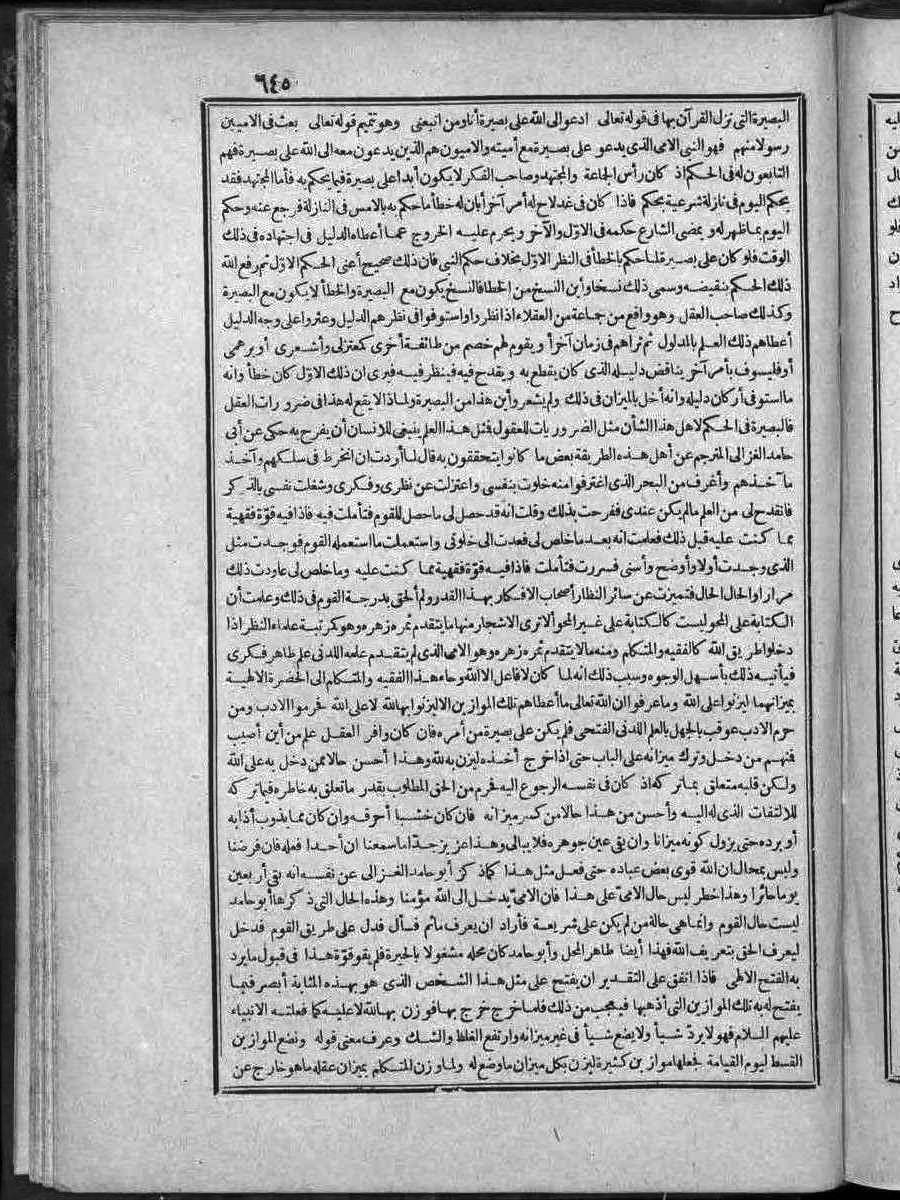 ٦٤٥
البصيرة التى نزل القرآن بها فى قوله تعالى ادعو الى الله على بصيرة أنا ومن اتبعنى وهو تتميم قوله تعالى بعث فى الاميين
رسولا منهم فهو النبى الامى الذى يدعو على بصيرة مع أميته والاميون هم الذين يدعون معه الى الله على بصيرة فهم
التابعون له فى الحكم اذ كان رأس الجماعة والمجتهد وصاحب الفكر لا يكون أبدا على بصيرة فيما يحكم به فأما المجتهد فقد
يحكم اليوم فى نازلة شرعية بحكم فاذا كان فى غد لاح له أمر آخر أبان له خطأ ما حكم به بالامس فى النازلة فرجع عنه وحكم
اليوم بما ظهر له ويمضى الشارع حكمه فى الاول والآخر ويحرم عليه الخروج عما أعطاه الدليل فى اجتهاده فى ذلك
الوقت فلو كان على بصيرة لما حكم بالخطأ فى النظر الاول بخلاف حكم النبى فان ذلك صحيح أعنى الحكم الاول ثم رفع الله
ذلك الحكم بنقيضه وسمى ذلك نسخا وأين النسخ من الخطا فالنسخ يكون مع البصيرة والخطأ لا يكون مع البصيرة
وكذلك صاحب العقل وهو واقع من جماعة من العقلاء اذا نظروا واستوفوا فى نظرهم الدليل وعثروا على وجه الدليل
أعطاهم ذلك العلم بالمدلول ثم تراهم فى زمان آخر أو يقوم لهم خصم من طائفة أخرى كمعتزلى وأشعرى أو برهمى
أو فيلسوف بأمر آخر يناقض دليله الذى كان يقطع به ويقدح فيه فينظر فيه فيرى ان ذلك الاول كان خطأ وانه
ما استوفى أركان دليله وانه أخل بالميزان فى ذلك ولم يشعر وأين هذا من البصيرة ولماذا لا يقع له هذا فى ضرورات العقل
فالبصيرة فى الحكم لاهل هذا الشأن مثل الضروريات للعقول فمثل هذا العلم ينبغى للانسان أن يفرح به حكى عن أبى
حامد الغزالى المترجم عن أهل هذه الطريقة بعض ما كانوا يتحققون به قال لما أردت ان انخرط فى سلكهم وآخذ
مآخذهم وأغرف من البحر الذى اغترفوا منه خلوت بنفسى واعتزلت عن نظرى وفكرى وشغلت نفسى بالذكر
فانقدح لى من العلم مالم يكن عندى ففرحت بذلك وقلت انه قد حصل لى ما حصل للقوم فتأملت فيه فاذا فيه قوة فقهية
مما كنت عليه قبل ذلك فعلمت انه بعد ما خلص لى فعدت الى خلوتى واستعملت ما استعمله القوم فوجدت مثل
الذى وجدت أولا وأوضح وأسنى فسررت فتأملت فاذا فيه قوة فقهية مما كنت عليه وما خلص لى عاودت ذلك
مرارا والحال الحال فتميزت عن سائر النظار أصحاب الافكار بهذا القدر ولم ألحق بدرجة القوم فى ذلك وعلمت أن
الكتابة على المحو ليست كالكتابة على غير المحو ألا ترى الاشجار منها ما يتقدم ثمره زهره وهو كمرتبة علماء النظر اذا
دخلوا طريق الله كالفقيه والمتكلم ومنه مالا يتقدم ثمره زهره وهو الامى الذى لم يتقدم علمه اللدنى علم ظاهر فكرى
فيأتيه ذلك بأسهل الوجوه وسبب ذلك انه لما كان لا فاعل الا الله وجاء هذا الفقيه والمتكلم الى الحضرة الالهية
بميزانهما ليزنوا على الله وما عرفوا ان الله تعالى ما أعطاهم تلك الموازين الا ليزنوا بها لله لا على الله فحرموا الادب ومن
حرم الادب عوقب بالجهل بالعلم اللدنى الفتحى فلم يكن على بصيرة من أمره فان كان وافر العقل علم من أين أصيب
فمنهم من دخل وترك ميزانه على الباب حتى اذا خرج أخذه ليزن به لله وهذا أحسن حالا ممن دخل به على الله
ولكن قلبه متعلق بما تركه اذ كان فى نفسه الرجوع اليه فحرم من الحق المطلوب بقدر ما تعلق به خاطره فيما تركه
للالتفات الذى له اليه وأحسن من هذا حالا من كسر ميزانه فان كان خشبا أحرقه وان كان مما يذوب أذابه
أو برده حتى يزول كونه ميزانا وان بقى عين جوهره فلا يبالى وهذا عزيز جدا ما سمعنا ان أحدا فعله فان فرضنا
وليس بمحال ان الله قوى بعض عباده حتى فعل مثل هذا كما ذكر أبو حامد الغزالى عن نفسه انه بقى أربعين
يوما حائرا وهذا خطر ليس حال الامى على هذا فان الامى يدخل الى الله مؤمنا وهذه الحال التى ذكرها أبو حامد
ليست حال القوم وانما هى حالة من لم يكن على شريعة فأراد ان يعرف ماثم فسأل فدل على طريق القوم فدخل
ليعرف الحق بتعريف الله فهذا أيضا طاهر المحل وأبو حامد كان محله مشغولا بالحيرة فلم يقو قوة هذا فى قبول ما يرد
به الفتح الالهى فاذا اتفق على التقدير ان يفتح على مثل هذا الشخص الذى هو بهذه المثابة أبصر فيما
يفتح له به تلك الموازين التى أذهبها فيعجب من ذلك فلما خرج خرج بها فوزن بها لله لا عليه كما فعلته الانبياء
عليهم السلام فهو لا يرد شيأ ولا يضع شيأ فى غير ميزانه وارتفع الغلط والشك وعرف معنى قوله ونضع الموازين
القسط ليوم القيامة فجعلها موازين كثيرة ليزن بكل ميزان ما وضع له ولما وزن المتكلم بميزان عقله ما هو خارج عن